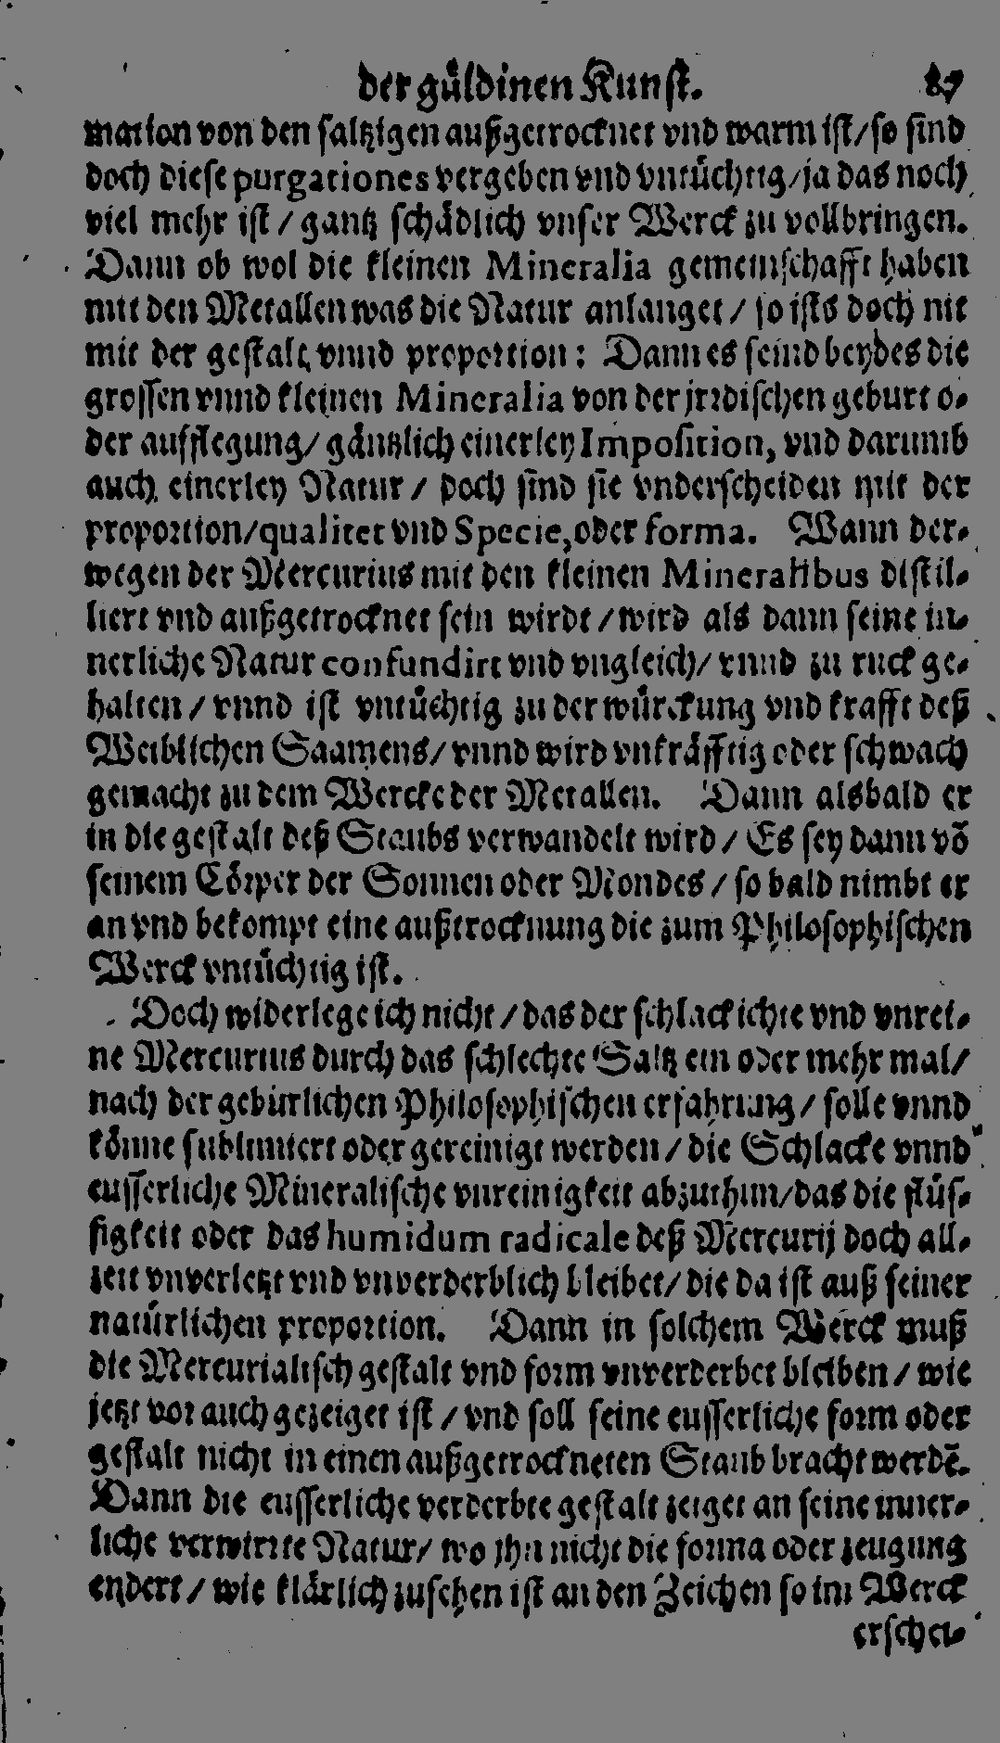 der güldinen Kunst. 87
mation von den saltzigen außgetrocknet vnd warm ist/so sind
doch diese purgationes vergeben vnd vntüchtig/ja das noch
viel mehr ist / gantz schädlich vnser Werck zu vollbringen.
Dann ob wol die kleinen Mineralia gemeinschafft haben
mit den Metallen was die Natur anlanget / so ists doch nit
mit der gestalt vnnd proportion: Dann es seind beydes die
grossen vnnd kleinen Mineralia von der jrrdischen geburt o-
der aufflegung/ gäntzlich einerley Imposition, vnd darumb
auch einerley Natur / doch sind sie vnderscheiden mit der
proportion/qualitet vnd Specie, oder forma. Wann der-
wegen der Mercurius mit den kleinen Mineralibus distil-
liert vnd außgetrocknet sein wirdt / wird als dann seine in-
nerliche Natur confundirt vnd vngleich/ vnnd zu ruck ge-
halten / vnnd ist vntüchtig zu der würckung vnd krafft deß
Weiblichen Saamens/ vnnd wird vnkräfftig oder schwach
gemacht zu dem Wercke der Metallen. Dann alsbald er
in die gestalt deß Staubs verwandelt wird / Es sey dann võ
seinem Cörper der Sonnen oder Mondes / so bald nimbt er
an vnd bekompt eine außtrocknung die zum Philosophischen
Werck vntüchtig ist.
Doch widerlege ich nicht / das der schlackichte vnd vnrei-
ne Mercurius durch das schlechte Saltz ein oder mehr mal/
nach der gebürlichen Philosophischen erfahrung / solle vnnd
könne sublimiert oder gereinigt werden / die Schlacke vnnd
eusserliche Mineralische vnreinigkeit abzuthun/das die flüs-
sigkeit oder das humidum radicale deß Mercurij doch all-
zeit vnverletzt vnd vnverderblich bleibet/ die da ist auß seiner
natürlichen proportion. Dann in solchem Werck muß
die Mercurialisch gestalt vnd form vnverderbet bleiben / wie
jetzt vor auch gezeiget ist / vnd soll seine eusserliche form oder
gestalt nicht in einen außgetrockneten Staub bracht werdē.
Dann die eusserliche verderbte gestalt zeiget an seine inner-
liche verwirrte Natur/ wo jhn nicht die forma oder zeugung
endert / wie klärlich zusehen ist an den Zeichen so im Werck
erschei-